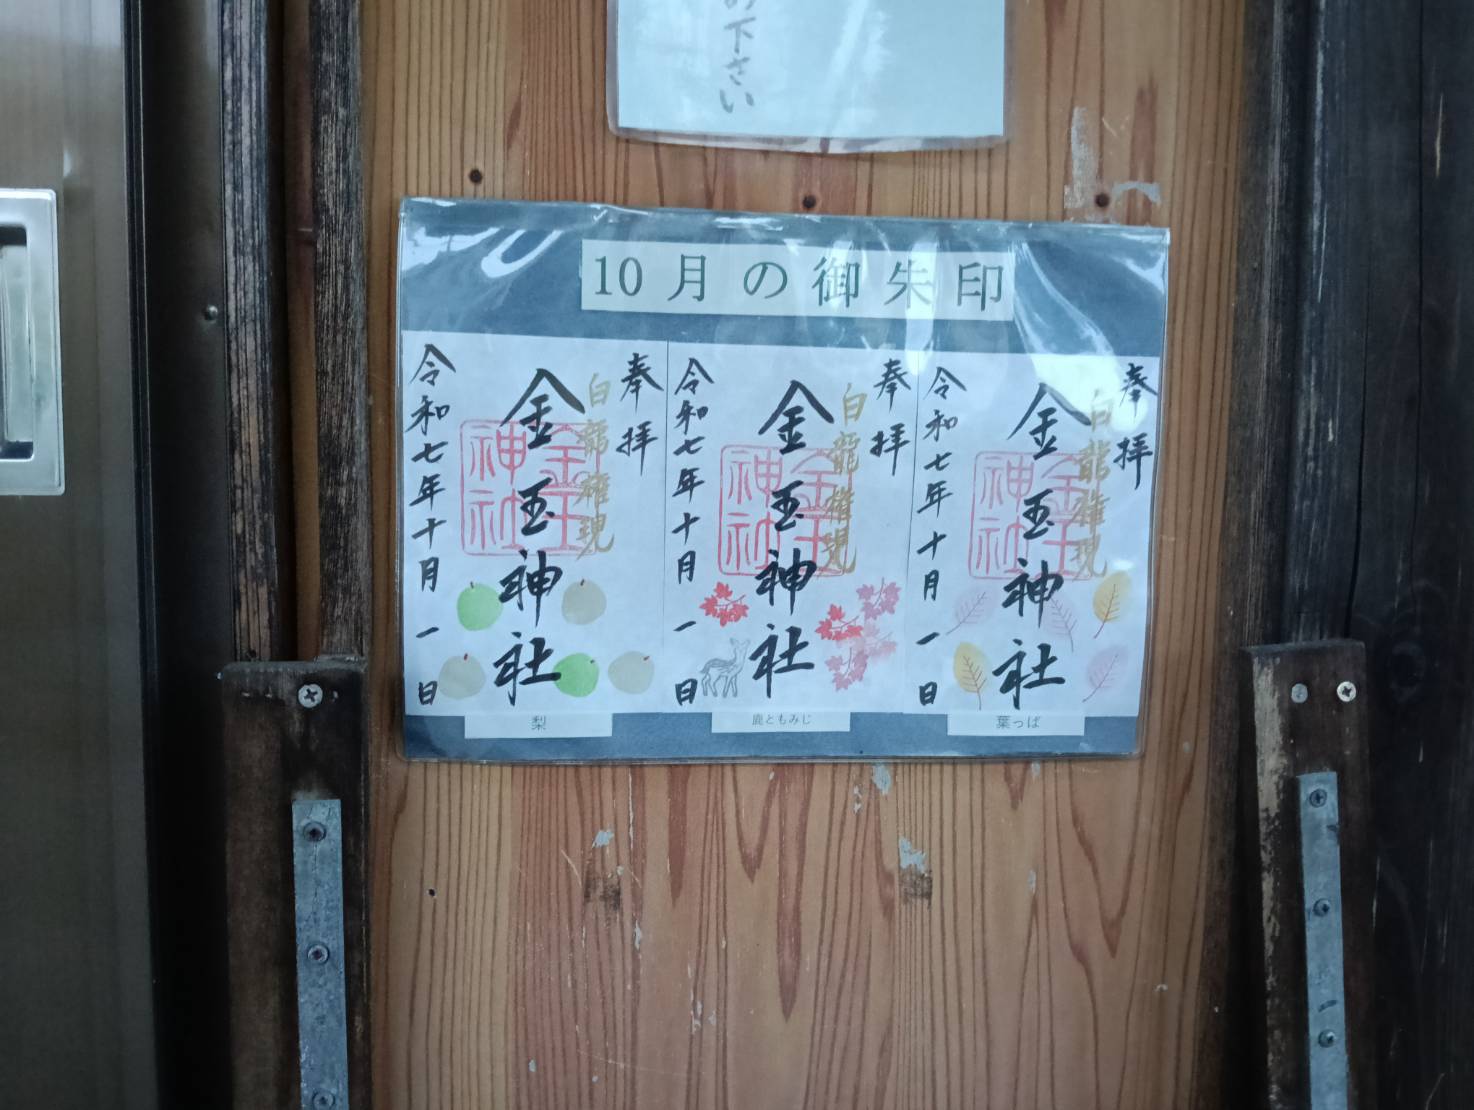 の下さい
10月の御朱印
奉拝
白龍権現
金玉神社
金玉神社
令和七年十月一日
奉拝
白龍権現
金玉神社
金玉神社
令和七年十月一日
奉拝
白龍権現
金玉神社
金玉神社
令和七年十月一日
梨
鹿ともみじ
葉っぱ